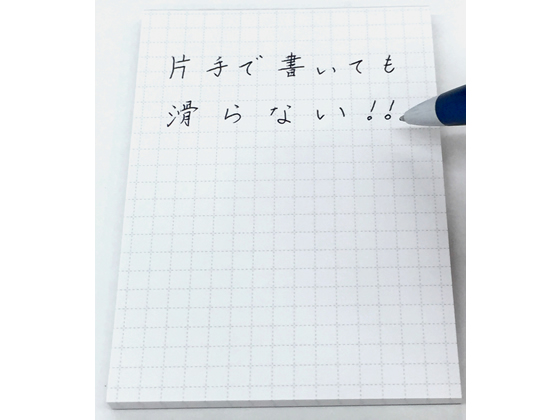 片手で書いても
滑らない!!